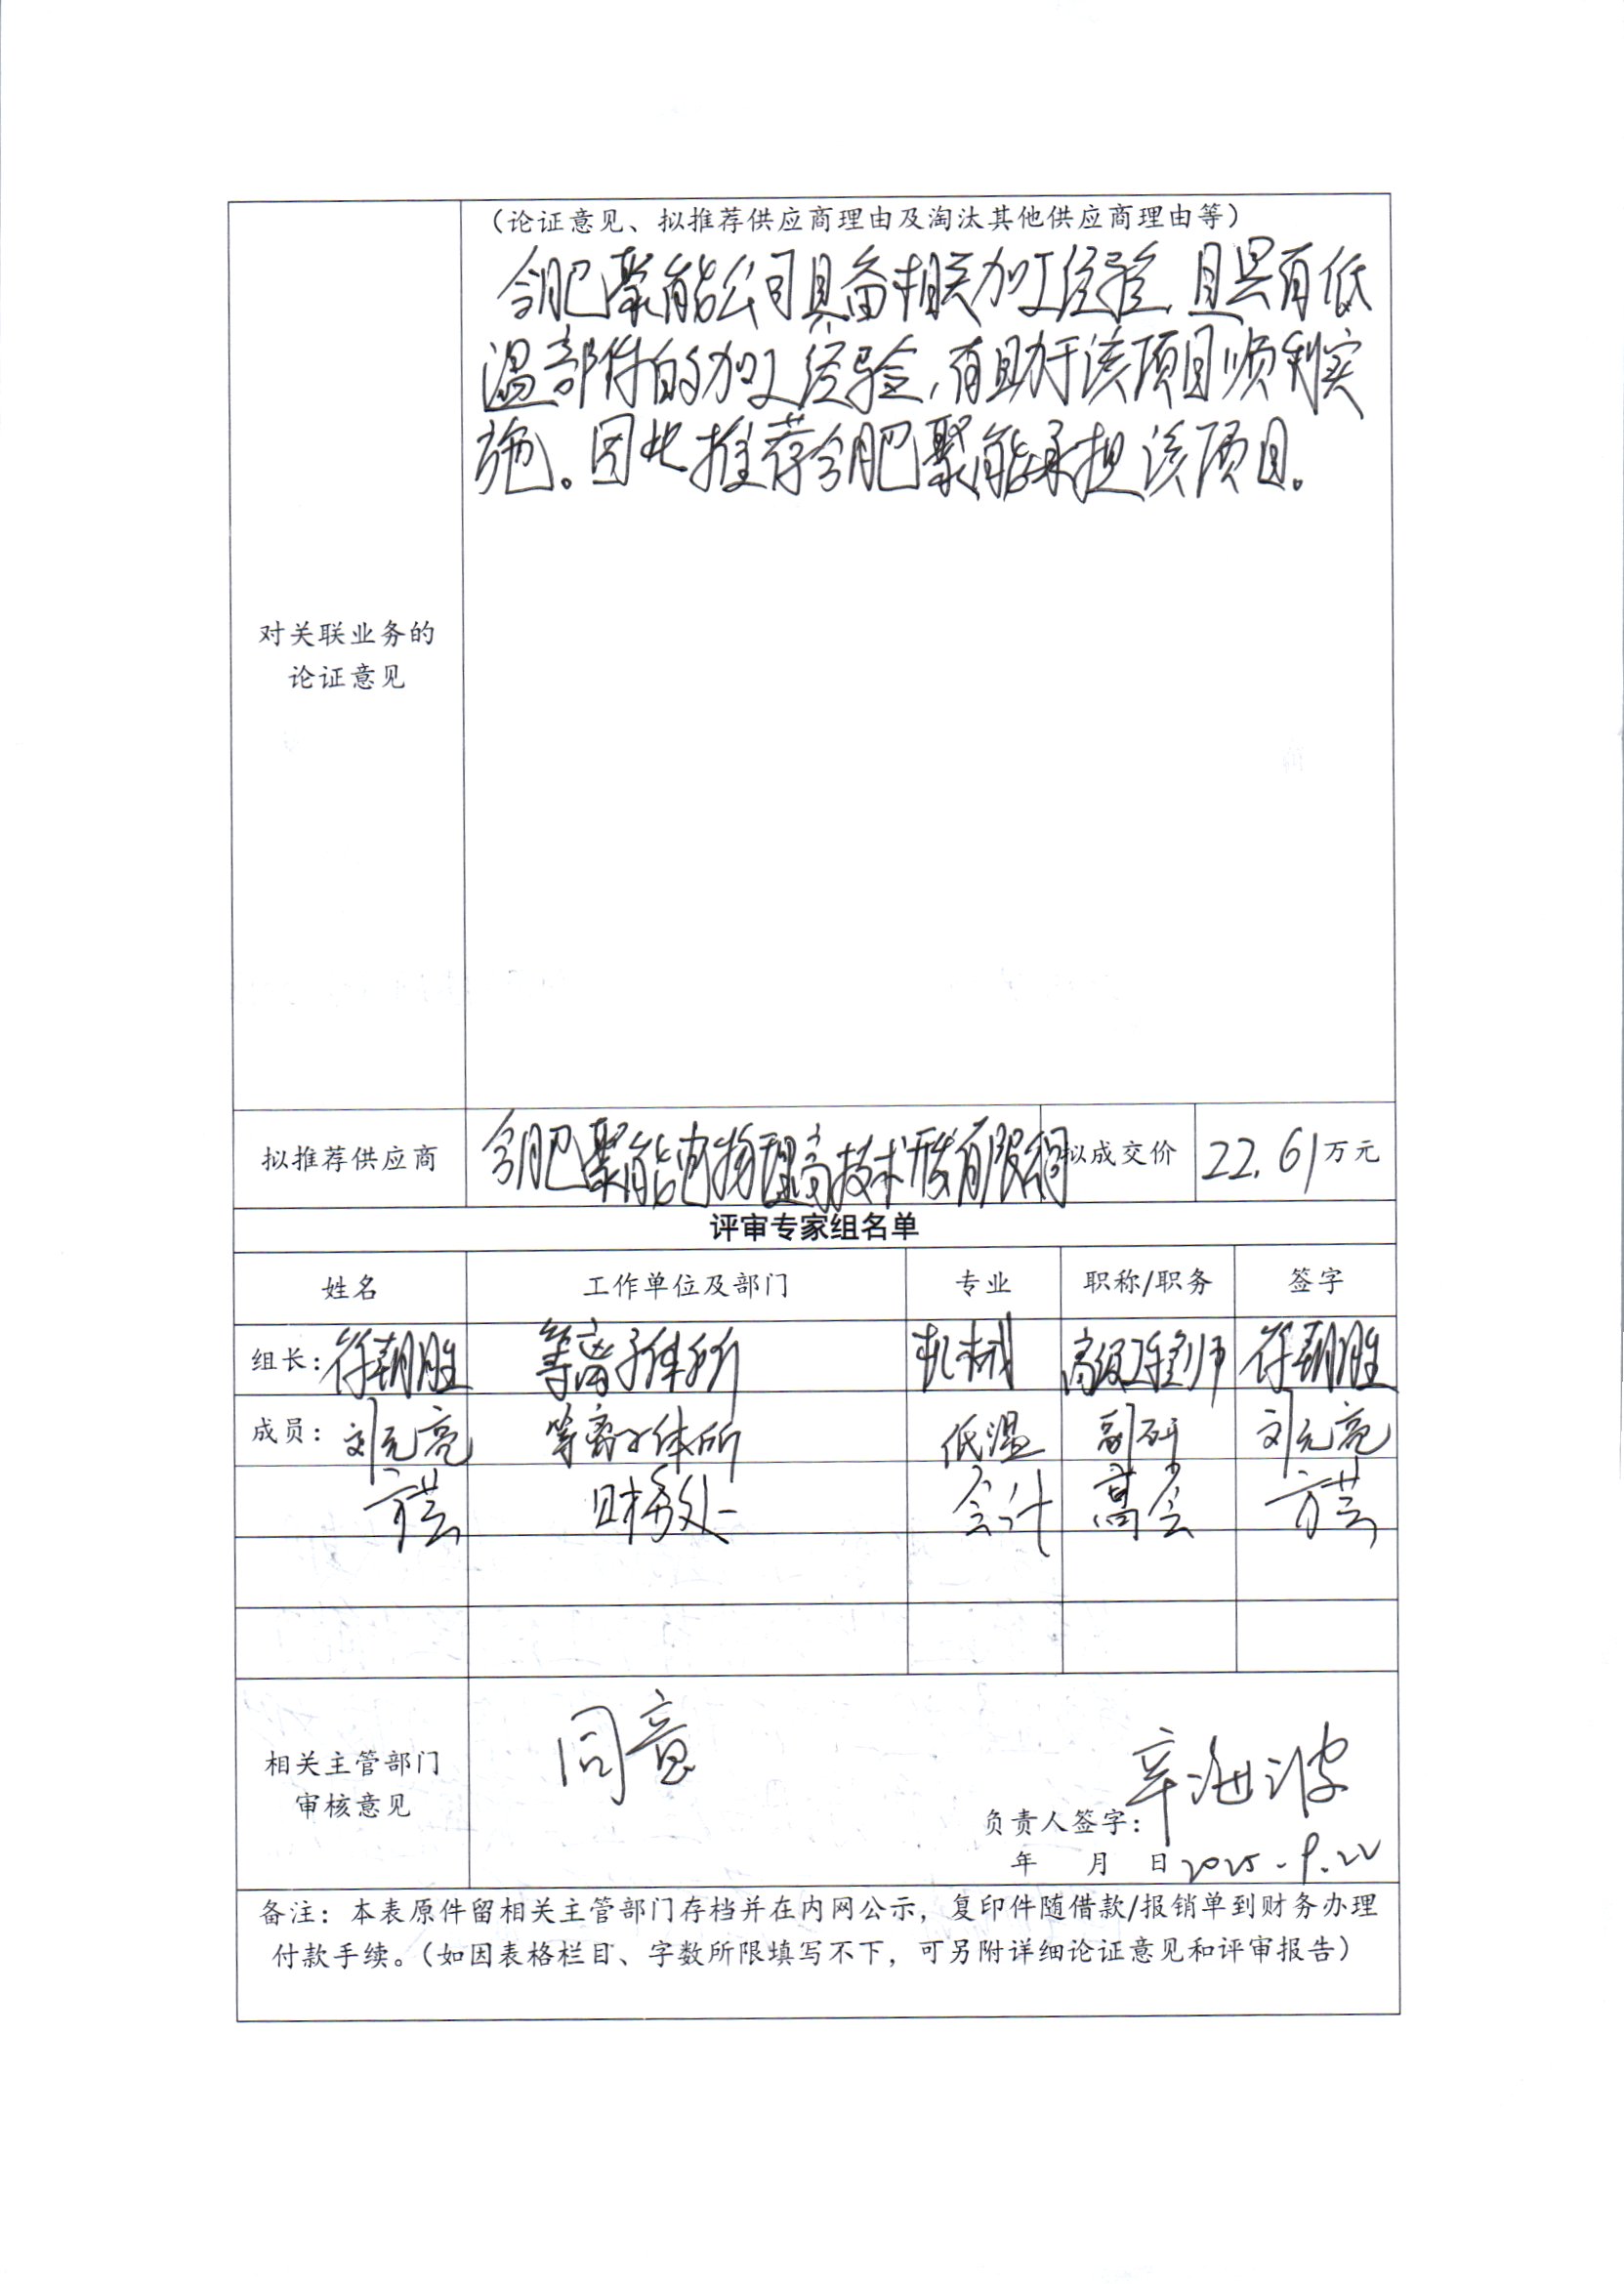 （论证意见、拟推荐供应商理由及淘汰其他供应商理由等）
合肥聚能公司具备相关加工经验，且具有低
温部件的加工经验，有助于该项目顺利实
施。因此推荐合肥聚能承担该项目。
对关联业务的
论证意见
拟推荐供应商 合肥聚能电物理高技术开发有限公司 拟成交价 22.61 万元
评审专家组名单
姓名 工作单位及部门 专业 职称/职务 签字
组长：符朝胜 等离子体所 机械 高级工程师 符朝胜
成员：刘元亮 等离子体所 低温 副研 刘元亮
方芸 财务处 会计 高会 方芸
相关主管部门
审核意见
同意
辛海波
负责人签字：
年 月 日 2025.9.22
备注：本表原件留相关主管部门存档并在内网公示，复印件随借款/报销单到财务办理
付款手续。（如因表格栏目、字数所限填写不下，可另附详细论证意见和评审报告）